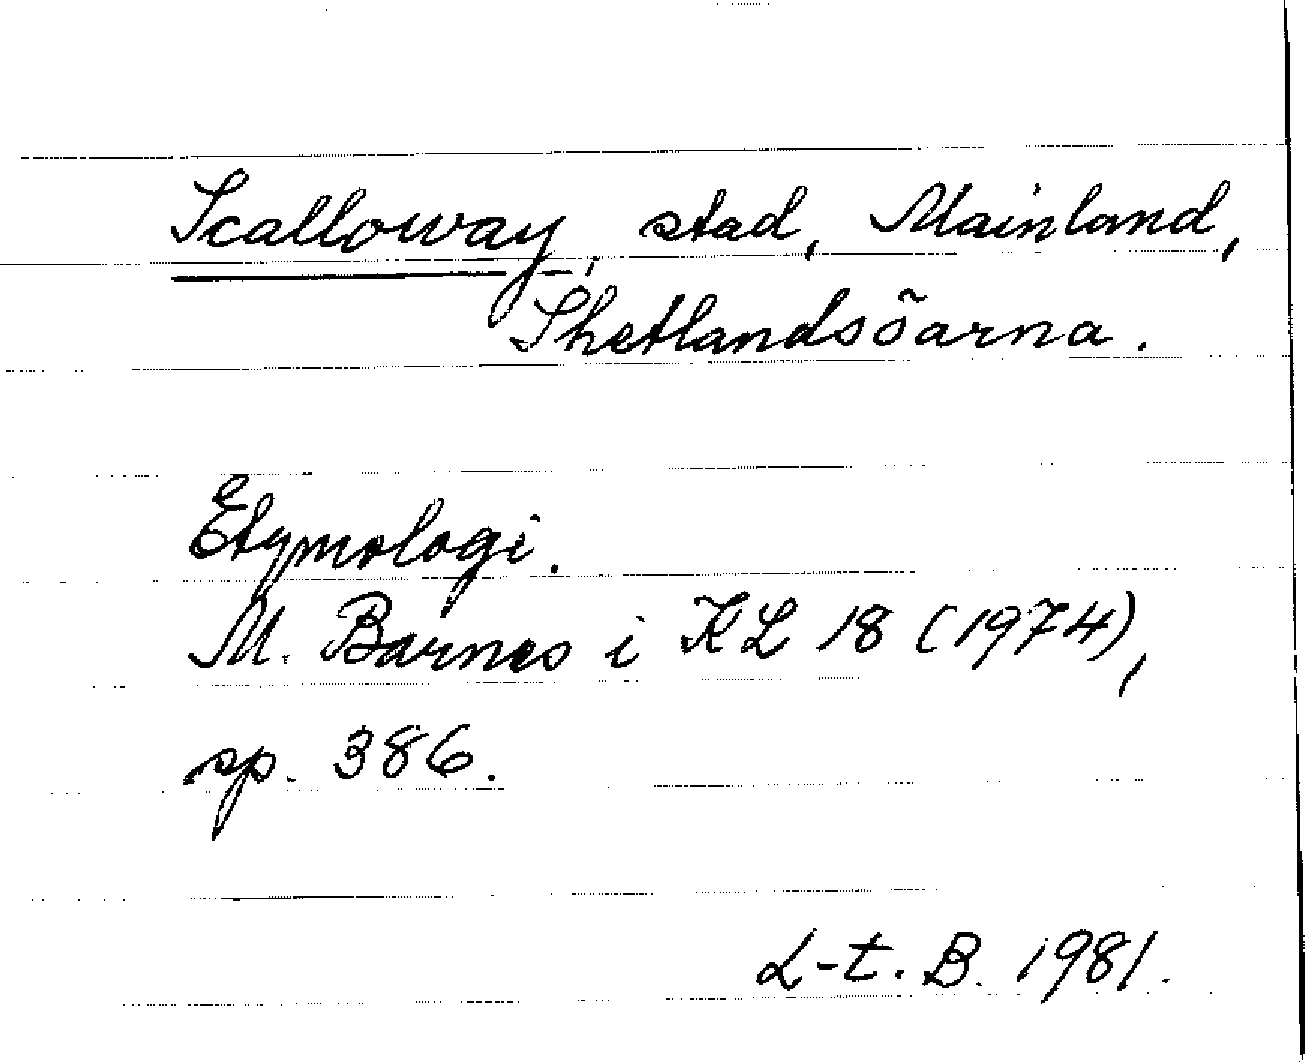 Scalloway, stad, Mainland,
Shetlandsöarna.
Etymologi.
M. Barnes i KL 18 (1974),
sp. 386.
L-t. B. 1981.